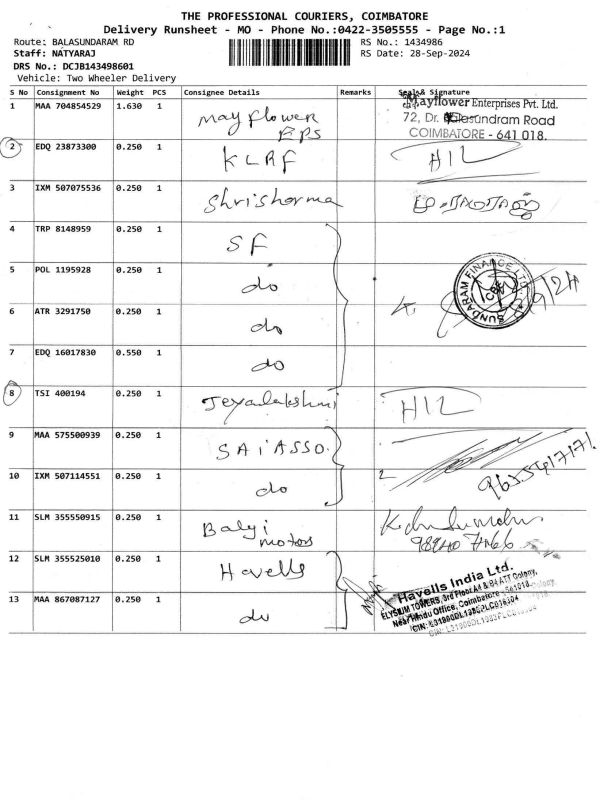 THE PROFESSIONAL COURIERS, COIMBATORE
Delivery Runsheet - MO - Phone No.:0422-3505555 - Page No.:1
Route: BALASUNDARAM RD
RS No.: 1434986
Staff: NATYARAJ
RS Date: 28-Sep-2024
DRS No.: DCJB143498601
Vehicle: Two Wheeler Delivery
S No Consignment No Weight PCS Consignee Details Remarks Seal & Signature
1 MAA 704854529 1.630 1 Mayflower EPS
Mayflower Enterprises Pvt. Ltd.
72, Dr. Balasundram Road
COIMBATORE - 641 018.
2 EDQ 23873300 0.250 1 KLRF HIL
3 IXM 507075536 0.250 1 Shrisharma
4 TRP 8148959 0.250 1 SF
5 POL 1195928 0.250 1 do
SUNDARAM FINANCE LTD
6 ATR 3291750 0.250 1 do
7 EDQ 16017830 0.550 1 do
8 TSI 400194 0.250 1 Jeyalakshmi HIL
9 MAA 575500939 0.250 1 SAI ASSO.
10 IXM 507114551 0.250 1 do
11 SLM 355550915 0.250 1 Balaji motors
12 SLM 355525010 0.250 1 Havells
Havells India Ltd.
ELYSIUM TOWERS, 3rd Floor
Near Hindu Office, Coimbatore
13 MAA 867087127 0.250 1 do